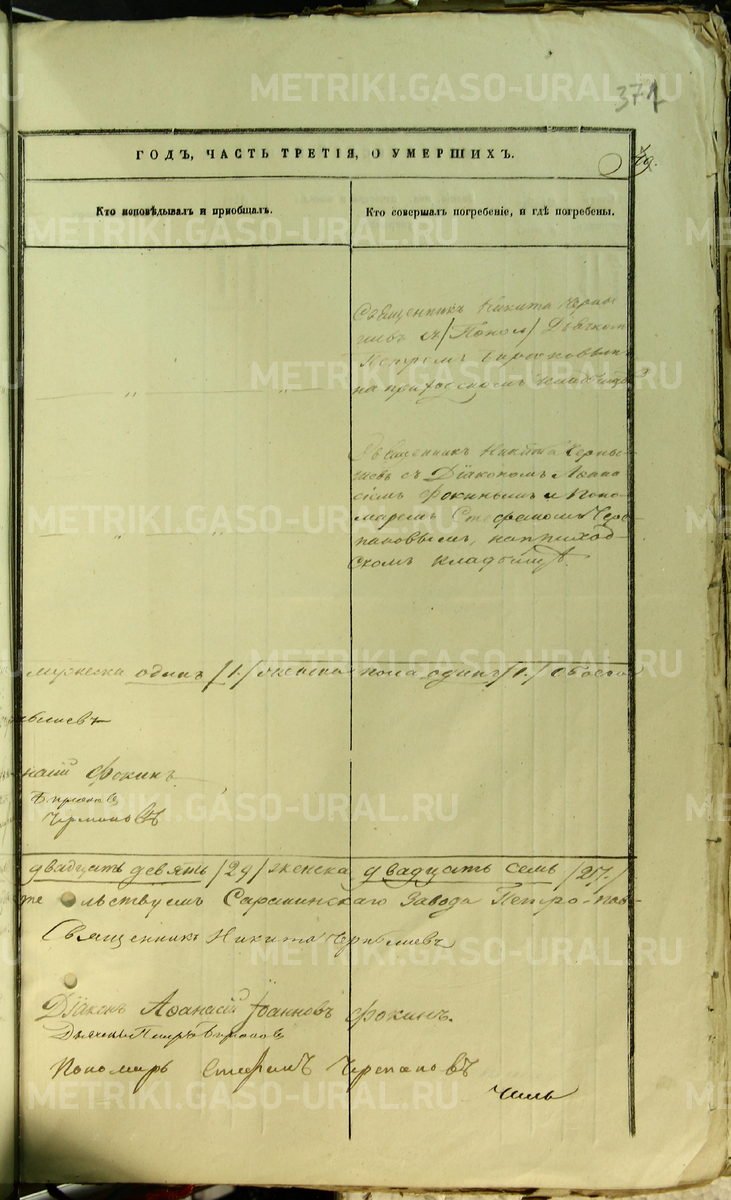 METRIKI.GASO-URAL.RU
371
ГОДЪ, ЧАСТЬ ТРЕТІЯ, О УМЕРШИХЪ.
79.
Кто исповѣдывалъ и пріобщалъ.
Кто совершалъ погребеніе, и гдѣ погребены.
Священникъ Никита Черны
шевъ
Петромъ
на приходскомъ кладбищѣ
Священникъ Никита Черны
шевъ съ Діакономъ Аѳана
сіемъ Фокинымъ и Поно
маремъ Стефаномъ Чере
пановымъ, на приход-
скомъ кладбищѣ.
мужеска одинъ /1/ женска пола одинъ /1/ обоего
нышевъ
насій Фокинъ
двадцать девять /29/ женска двадцать семь /27/
льствуемъ Саранинскаго Завода Петро-пав-
Священникъ Никита Чернышевъ
Діаконъ Аѳанасій Іоанновъ Фокинъ.
Пономарь Стефанъ Черепановъ